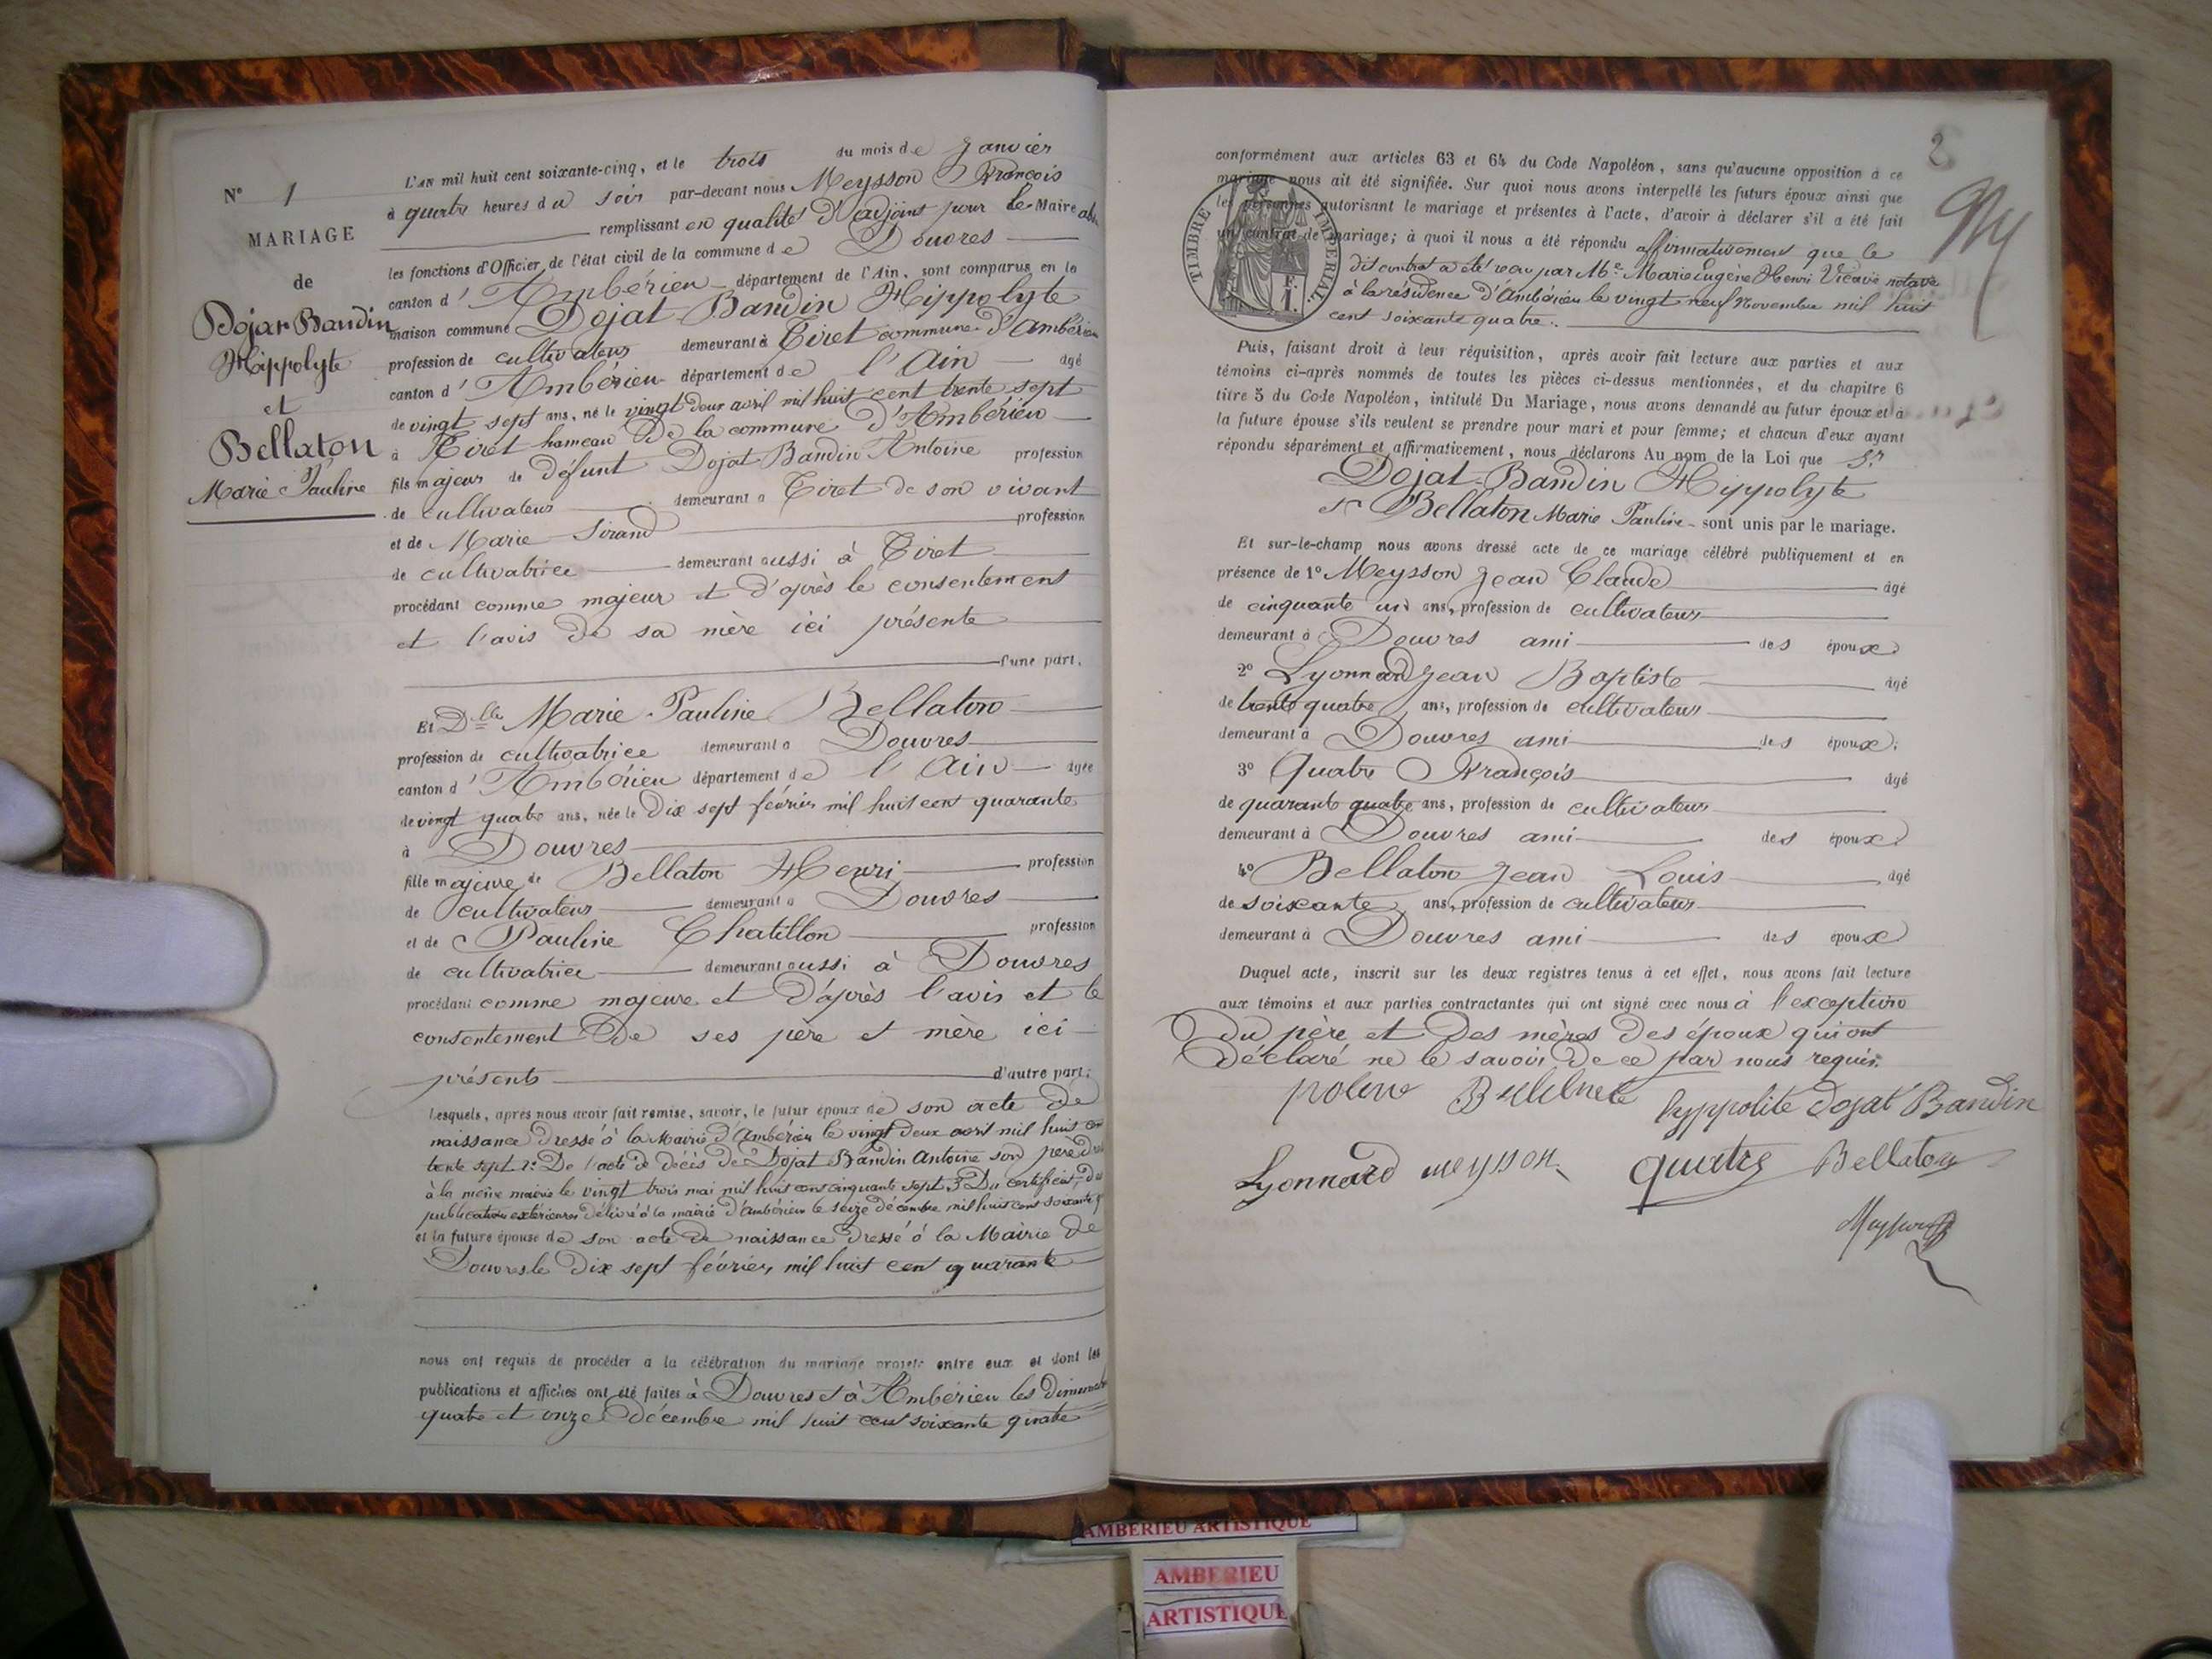 N° 1
MARIAGE
de
Dojat Bandin
Hippolyte
et
Bellaton
Marie Pauline
L'AN mil huit cent soixante-cinq, et le trois du mois de Janvier
à quatre heures du soir par-devant nous Meysson François
remplissant en qualité d'adjoint pour le Maire
les fonctions d'Officier de l'état civil de la commune de Douvres
canton d'Ambérieu département de l'Ain, sont comparus en la
maison commune Dojat-Bandin Hippolyte
profession de cultivateur demeurant à Tiret commune d'Ambérieu
canton d'Ambérieu département de l'Ain âgé
de vingt sept ans, né le vingt deux avril mil huit cent trente sept
à Tiret hameau de la commune d'Ambérieu
fils majeur de défunt Dojat Bandin Antoine profession
de cultivateur demeurant à Tiret de son vivant
et de Marie Sirand profession
de cultivatrice demeurant aussi à Tiret
procédant comme majeur et d'après le consentement
et l'avis de sa mère ici présente
d'une part.
Et Dlle Marie Pauline Bellaton
profession de cultivatrice demeurant à Douvres
canton d'Ambérieu département de l'Ain agée
de vingt quatre ans, née le dix sept février mil huit cent quarante
à Douvres
fille majeure de Bellaton Henri profession
de cultivateur demeurant à Douvres
et de Pauline Chatillon profession
de cultivatrice demeurant aussi à Douvres
procédant comme majeure et d'après l'avis et le
consentement de ses père et mère ici
présents d'autre part.
Lesquels, après nous avoir fait remise, savoir, le futur époux de son acte de
naissance dressé à la Mairie d'Ambérieu le vingt deux avril mil huit cent
trente sept 2° De l'acte de décès de Dojat Bandin Antoine son père
à la même mairie le vingt trois mai mil huit cent cinquante sept 3° Du certificat de
publications extérieures délivré à la mairie d'Ambérieu le seize décembre mil huit cent soixante
et la future épouse de son acte de naissance dressé à la Mairie de
Douvres le dix sept février mil huit cent quarante
nous ont requis de procéder à la célébration du mariage projeté entre eux et dont les
publications et affiches ont été faites à Douvres et à Ambérieu les dimanches
quatre et onze décembre mil huit cent soixante quatre
2
conformément aux articles 63 et 64 du Code Napoléon, sans qu'aucune opposition à ce
mariage nous ait été signifiée. Sur quoi nous avons interpellé les futurs époux ainsi que
les personnes autorisant le mariage et présentes à l'acte, d'avoir à déclarer s'il a été fait
un contrat de mariage; à quoi il nous a été répondu affirmativement que le
dit contrat a été reçu par Me Marie Eugène Henri Vicaire notaire
à la résidence d'Ambérieu le vingt neuf Novembre mil huit
cent soixante quatre.
TIMBRE IMPERIAL
1 F.
Puis, faisant droit à leur réquisition, après avoir fait lecture aux parties et aux
témoins ci-après nommés de toutes les pièces ci-dessus mentionnées, et du chapitre 6
titre 5 du Code Napoléon, intitulé Du Mariage, nous avons demandé au futur époux et à
la future épouse s'ils veulent se prendre pour mari et pour femme; et chacun d'eux ayant
répondu séparément et affirmativement, nous déclarons Au nom de la Loi que Sr
Dojat-Bandin Hyppolyte
et Bellaton Marie Pauline sont unis par le mariage.
Et sur-le-champ nous avons dressé acte de ce mariage célébré publiquement et en
présence de 1° Meysson Jean Claude âgé
de cinquante un ans, profession de cultivateur
demeurant à Douvres ami des époux
2° Lyonnard Jean Baptiste âgé
de trente quatre ans, profession de cultivateur
demeurant à Douvres ami des époux;
3° Quatre François âgé
de quarante quatre ans, profession de cultivateur
demeurant à Douvres ami des époux
4° Bellaton Jean Louis âgé
de soixante ans, profession de cultivateur
demeurant à Douvres ami des époux
Duquel acte, inscrit sur les deux registres tenus à cet effet, nous avons fait lecture
aux témoins et aux parties contractantes qui ont signé avec nous à l'exception
du père et des mères des époux qui ont
déclaré ne le savoir de ce par nous requis.
hyppolite Dojat Bandin
Lyonnard meysson quatre Bellaton
AMBERIEU ARTISTIQUE
AMBERIEU
ARTISTIQUE